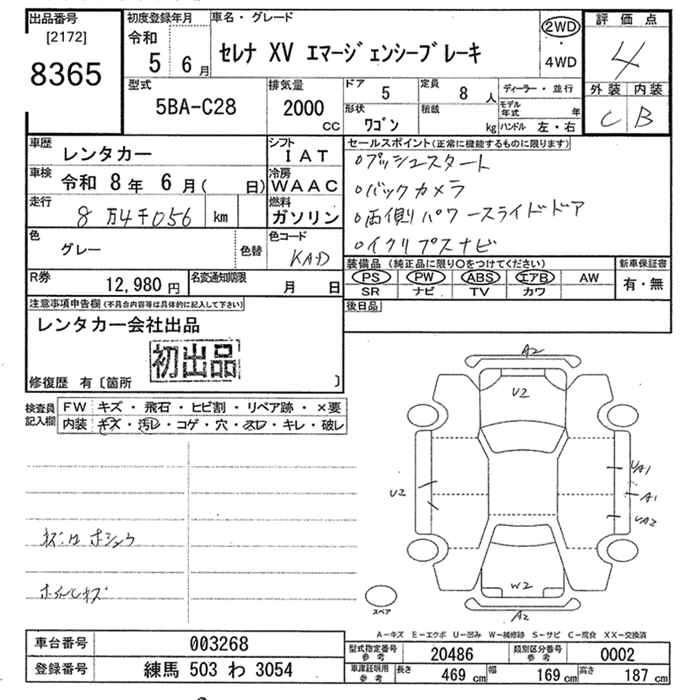 出品番号
[2172]
8365
初度登録年月
令和
5 6月
車名・グレード
セレナ XV エマージェンシーブレーキ
2WD
・
4WD
評価点
4
外装 内装
C B
型式
5BA-C28
排気量
2000
CC
ドア
5
定員
8 人
形状
ワゴン
積載
kg
ディーラー・並行
モデル年式 年
ハンドル 左・右
車歴
レンタカー
シフト
IAT
車検
令和 8年 6月( 日)
冷房
WAAC
走行
8万4千056 km
燃料
ガソリン
色
グレー
色替
色コード
KAD
R券
12,980 円
名変通知期限
月 日
セールスポイント(正常に機能するものに限ります)
○プッシュスタート
○バックカメラ
○両側パワースライドドア
○イクリプスナビ
装備品(純正品に限り○をつけてください)
PS PW ABS エアB AW
SR ナビ TV カワ
新車保証書
有・無
後日品
注意事項申告欄(不具合内容等は具体的に記入して下さい)
レンタカー会社出品
初出品
修復歴 有〔箇所 〕
検査員記入欄
FW キズ・飛石・ヒビ割・リペア跡・×要
内装 キズ・汚レ・コゲ・穴・スレ・キレ・破レ
A2
U2
U2
UA1
A1
UA2
W2
A2
スペア
A-キズ E-エクボ U-凹み W-補修跡 S-サビ C-腐食 XX-交換済
車台番号 003268
登録番号 練馬 503 わ 3054
型式指定番号 参考 20486
類別区分番号 参考 0002
車庫証明用 参考 長さ 469 cm 幅 169 cm 高さ 187 cm